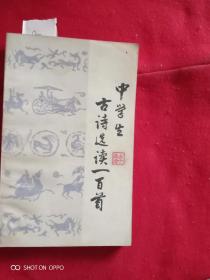 中学生
古诗选读一百首
SHOT ON OPPO